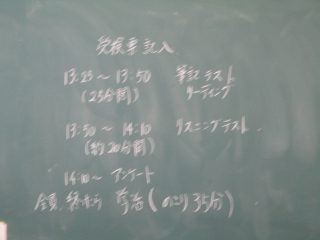 受検票記入
13:25～13:50 筆記テスト
(25分間) リーディング
13:50～14:10 リスニングテスト
(約20分間)
14:10～アンケート
全員終わったら (のこり35分)